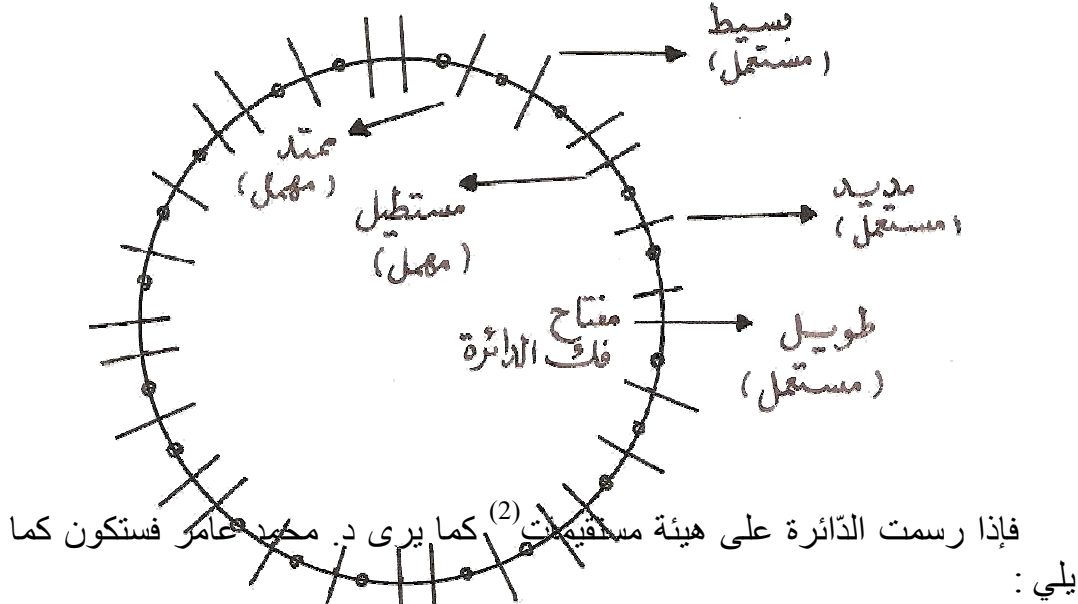 بسيط
(مستعمل)
ممتد
(مهمل)
مستطيل
(مهمل)
مديد
(مستعمل)
مفتاح
فك الدائرة
طويل
(مستعمل)
فإذا رسمت الدّائرة على هيئة مستقيمات(2) كما يرى د. محمد عامر فستكون كما
يلي :